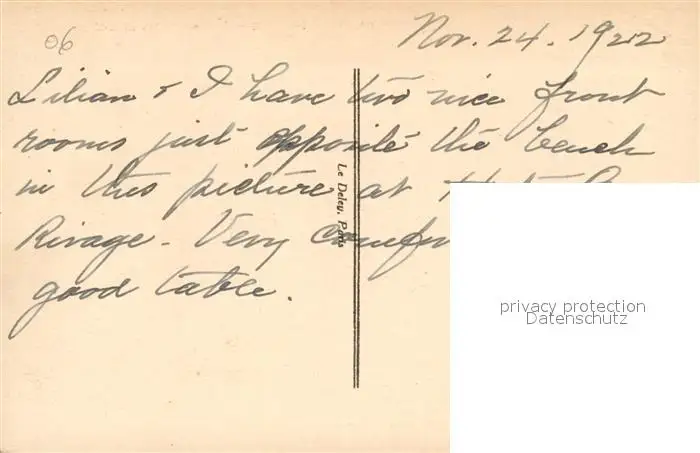 06
Nov. 24. 1922
Lilian & I have two nice front
rooms just opposite the bench
in this picture at
Rivage - Very
good table.
Le Deley, Paris
privacy protection
Datenschutz